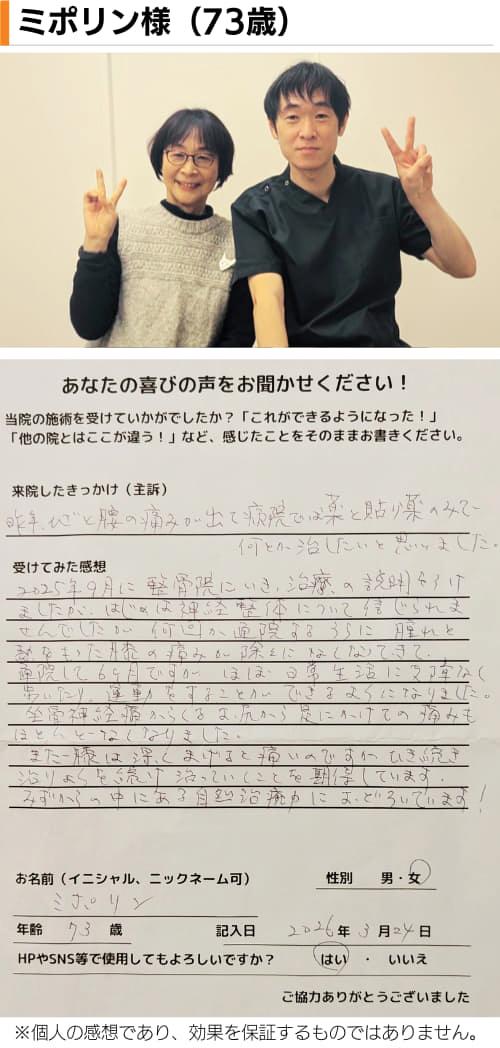 ミポリン様（73歳）
あなたの喜びの声をお聞かせください！
当院の施術を受けていかがでしたか？「これができるようになった！」
「他の院とはここが違う！」など、感じたことをそのままお書きください。
来院したきっかけ（主訴）
昨年、ひざと腰の痛みが出て病院では薬と貼り薬のみで
何とか治したいと思いました。
受けてみた感想
2025年9月に整骨院にいき、治療の説明をうけ
ましたが、はじめは神経整体について信じられま
せんでしたが何回か通院するうちに腫れと
熱をもった膝の痛みが除々になくなってきて、
通院して6ヶ月ですが、ほぼ日常生活に支障なく
歩いたり、運動をすることができるようになりました。
坐骨神経痛からくるお尻から足にかけての痛みも
ほとんどなくなりました。
まだ膝は深くまげると痛いのですが、ひき続き
治りょうを続け治っていくことを期待しています。
みずからの中にある自然治癒力におどろいています！
お名前（イニシャル、ニックネーム可）
性別 男・女
ミポリン
年齢 73 歳
記入日 2026年 3月24日
HPやSNS等で使用してもよろしいですか？ はい ・ いいえ
ご協力ありがとうございました
※個人の感想であり、効果を保証するものではありません。